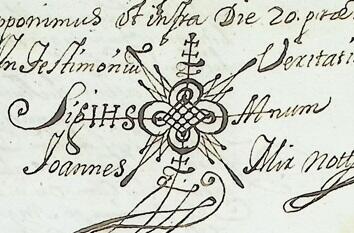 pponimus Ut infra Die 20. præ
In Testimoniũ Veritati
Sig IHS Mnum
Joannes Mir Nott